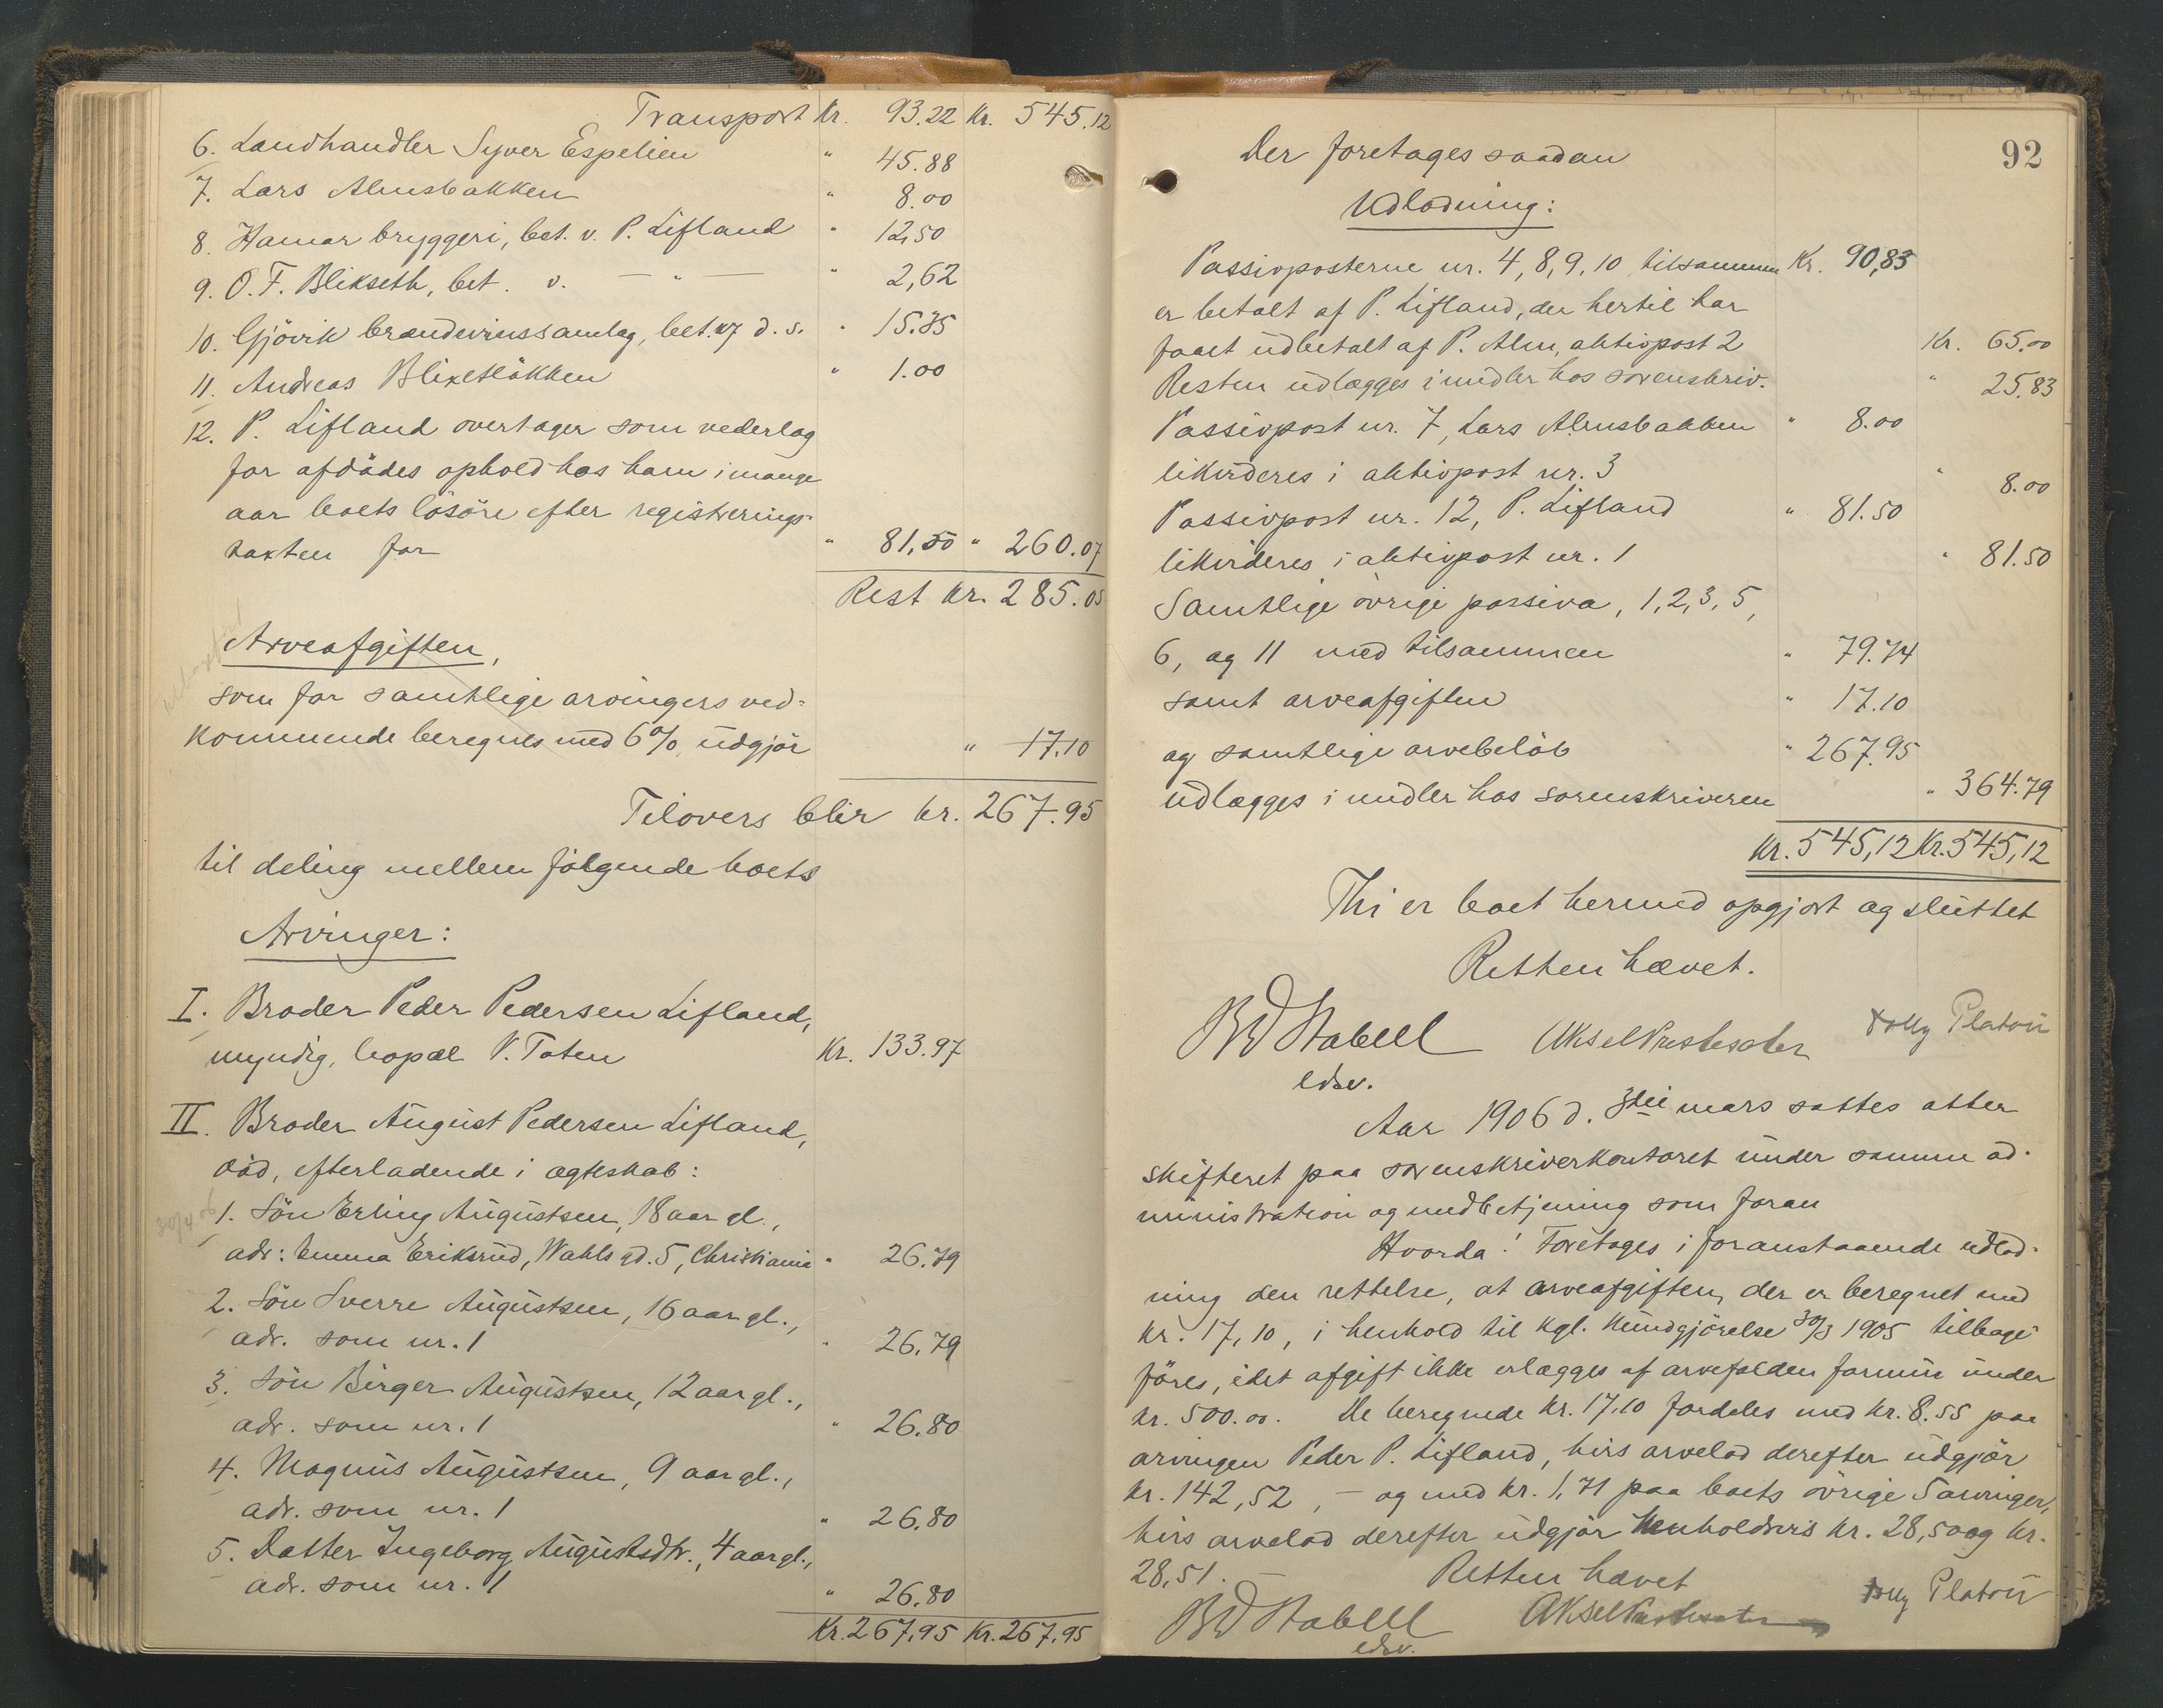 Transport Kr. 93.22 Kr. 545.12
6. Landhandler Syver Espelien " 45.88
7. Lars Almsbakken " 8.00
8. Hamar bryggeri, bet. v. P. Lifland " 12,50
9. O. F. Blikseth, bet. v. — " — " 2,62
10. Gjövik brændevinssamlag, bet. af d. s. " 15.35
11. Andreas Blixetløkken " 1.00
12. P. Lifland overtager som vederlag
for afdødes ophold hos ham i mange
aar boets løsøre efter registrerings-
taxten for " 81,50 " 260.07
Rest kr. 285.05
Arveafgiften,
som for samtlige arvingers ved-
kommende beregnes med 6%, udgjør " 17.10
Tilovers blir kr. 267.95
til deling mellem følgende boets
Arvinger:
I. Broder Peder Pedersen Lifland,
myndig, bopæl V. Toten Kr. 133.97
II. Broder August Pedersen Lifland,
død, efterladende i ægteskab:
1. Søn Erling Augustsen, 18 aar gl.,
adr: Emma Eriksrud, Wahls gd. 5, Christiania " 26.79
2. Søn Sverre Augustsen, 16 aar gl.,
adr. som nr. 1 " 26.79
3. Søn Birger Augustsen, 12 aar gl.,
adr. som nr. 1 " 26.80
4. Magnus Augustsen, 9 aar gl.,
adr. som nr. 1 " 26.80
5. Datter Ingeborg Augustsdtr., 4 aar gl.,
adr. som nr. 1 " 26.80
Kr. 267,95 Kr. 267,95
92
Der foretages saadan
Udlodning:
Passivposterne nr. 4, 8, 9, 10 tilsammen Kr. 90,83
er betalt af P. Lifland, der hertil har
faaet udbetalt af P. Alm, aktivpost 2 Kr. 65.00
Resten udlægges i midler hos sorenskriv. " 25.83
Passivpost nr. 7, Lars Almsbakken " 8.00
likvideres i aktivpost nr. 3 " 8.00
Passivpost nr. 12, P. Lifland " 81.50
likvideres i aktivpost nr. 1 " 81.50
Samtlige øvrige passiva, 1, 2, 3, 5,
6, og 11 med tilsammen " 79.74
samt arveafgiften " 17.10
og samtlige arvebeløb " 267.95
udlægges i midler hos sorenskriveren " 364.79
Kr. 545,12 Kr. 545,12
Thi er boet hermed opgjort og sluttet
Retten hævet.
Stabell Aksel Platou
edsv.
Aar 1906 d. 3die mars sattes atter
skifteret paa sorenskriverkontoret under samme ad-
ministration og medbetjening som foran
Hvorda! Foretages i foranstaaende udlod-
ning den rettelse, at arveafgiften, der er beregnet med
kr. 17,10, i henhold til kgl. kundgjørelse 30/3 1905 tilbage
føres, idet afgift ikke erlægges af arvefalden formue under
kr. 500.00. De beregnede kr. 17.10 fordeles med kr. 8.55 paa
arvingen Peder P. Lifland, hvis arvelod derefter udgjør
kr. 142,52, — og med kr. 1,71 paa boets øvrige 5 arvinger,
hvis arvelod derefter udgjør henholdsvis kr. 28,50 og kr.
28,51. — Retten hævet
Stabell Aksel Platou
edsv.